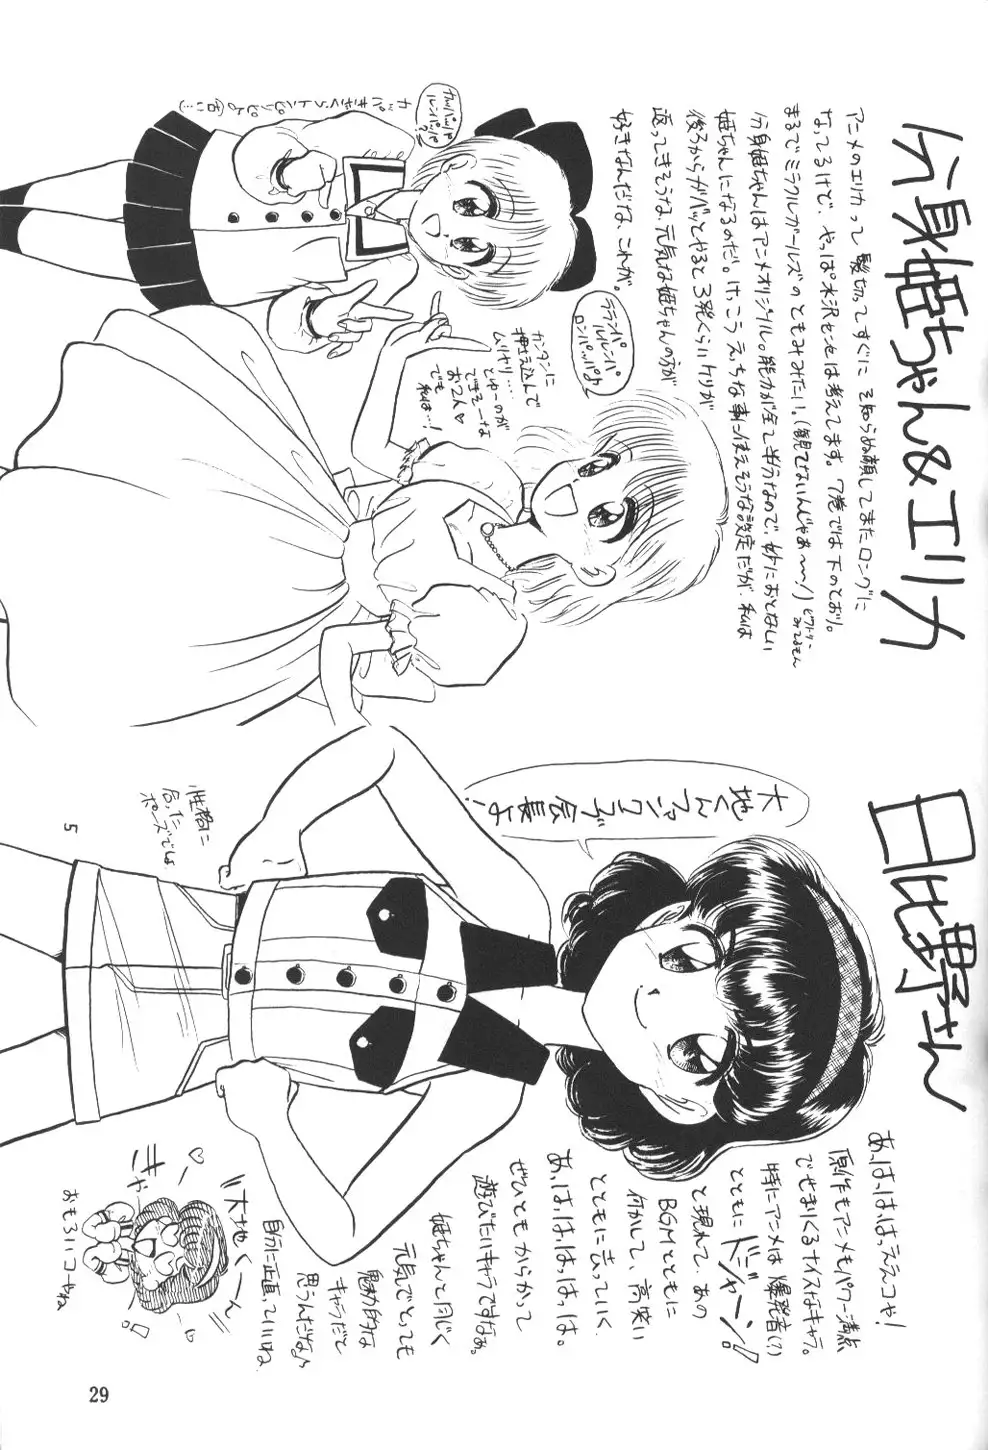 分身姫ちゃん&エリカ
アニメのエリカって髪切ってすぐにそ知らぬ顔してまたロングに
なってるけど、やっぱ水沢センセは考えてます。7巻では下のとおり。
まるでミラクルガールズのともみみたい。(観てないんじゃあ〜!)
分身姫ちゃんはアニメオリジナル。能力が全て半分なので、妙におとなしい
姫ちゃんになるのだ。けっこうえっちな事に使えそうな設定だが、私は
後ろからガバッとやると3発くらいケリが
返ってきそうな元気な姫ちゃんの方が
好きなんだな、これが。
カンタンに
押さえ込んで
ムリヤリ…
とゆーのが
できそーな
お2人♡
でも
私は…!
日比野さん
大地くんファンクラブ会長よ!
性格に
合った
ポーズでしょ
あっはっはっええコや!
原作もアニメもパワー満点
でせまりくるナイスなキャラ。
特にアニメは爆発者(?)
とともにドジャーン!
と現れて、あの
BGMとともに
何かして、高笑い
とともに去っていく
あっはっはっはっはっは。
ぜひともからかって
遊びたいキャラですなぁ。
姫ちゃんと同じく
元気でとっても
魅力的な
キャラだと
思うんだなぁ
自分に正直っていいね
大地くーん
きゃ
おもろいコーやね
29